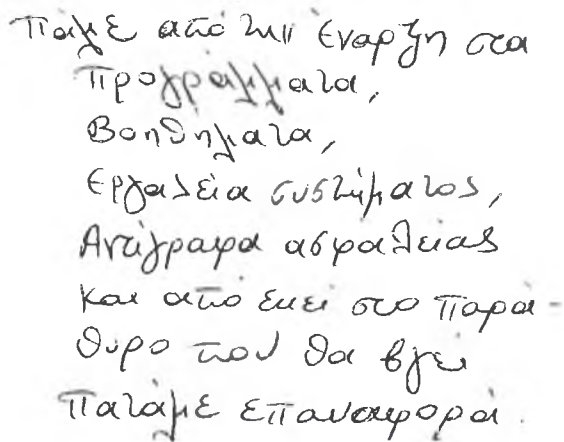 Πάμε από την έναρξη στα
Προγράμματα,
Βοηθήματα,
Εργαλεία συστήματος,
Αντίγραφα ασφαλείας
και από εκεί στο παρά-
θυρο που θα βγει
Πατάμε επαναφορά.